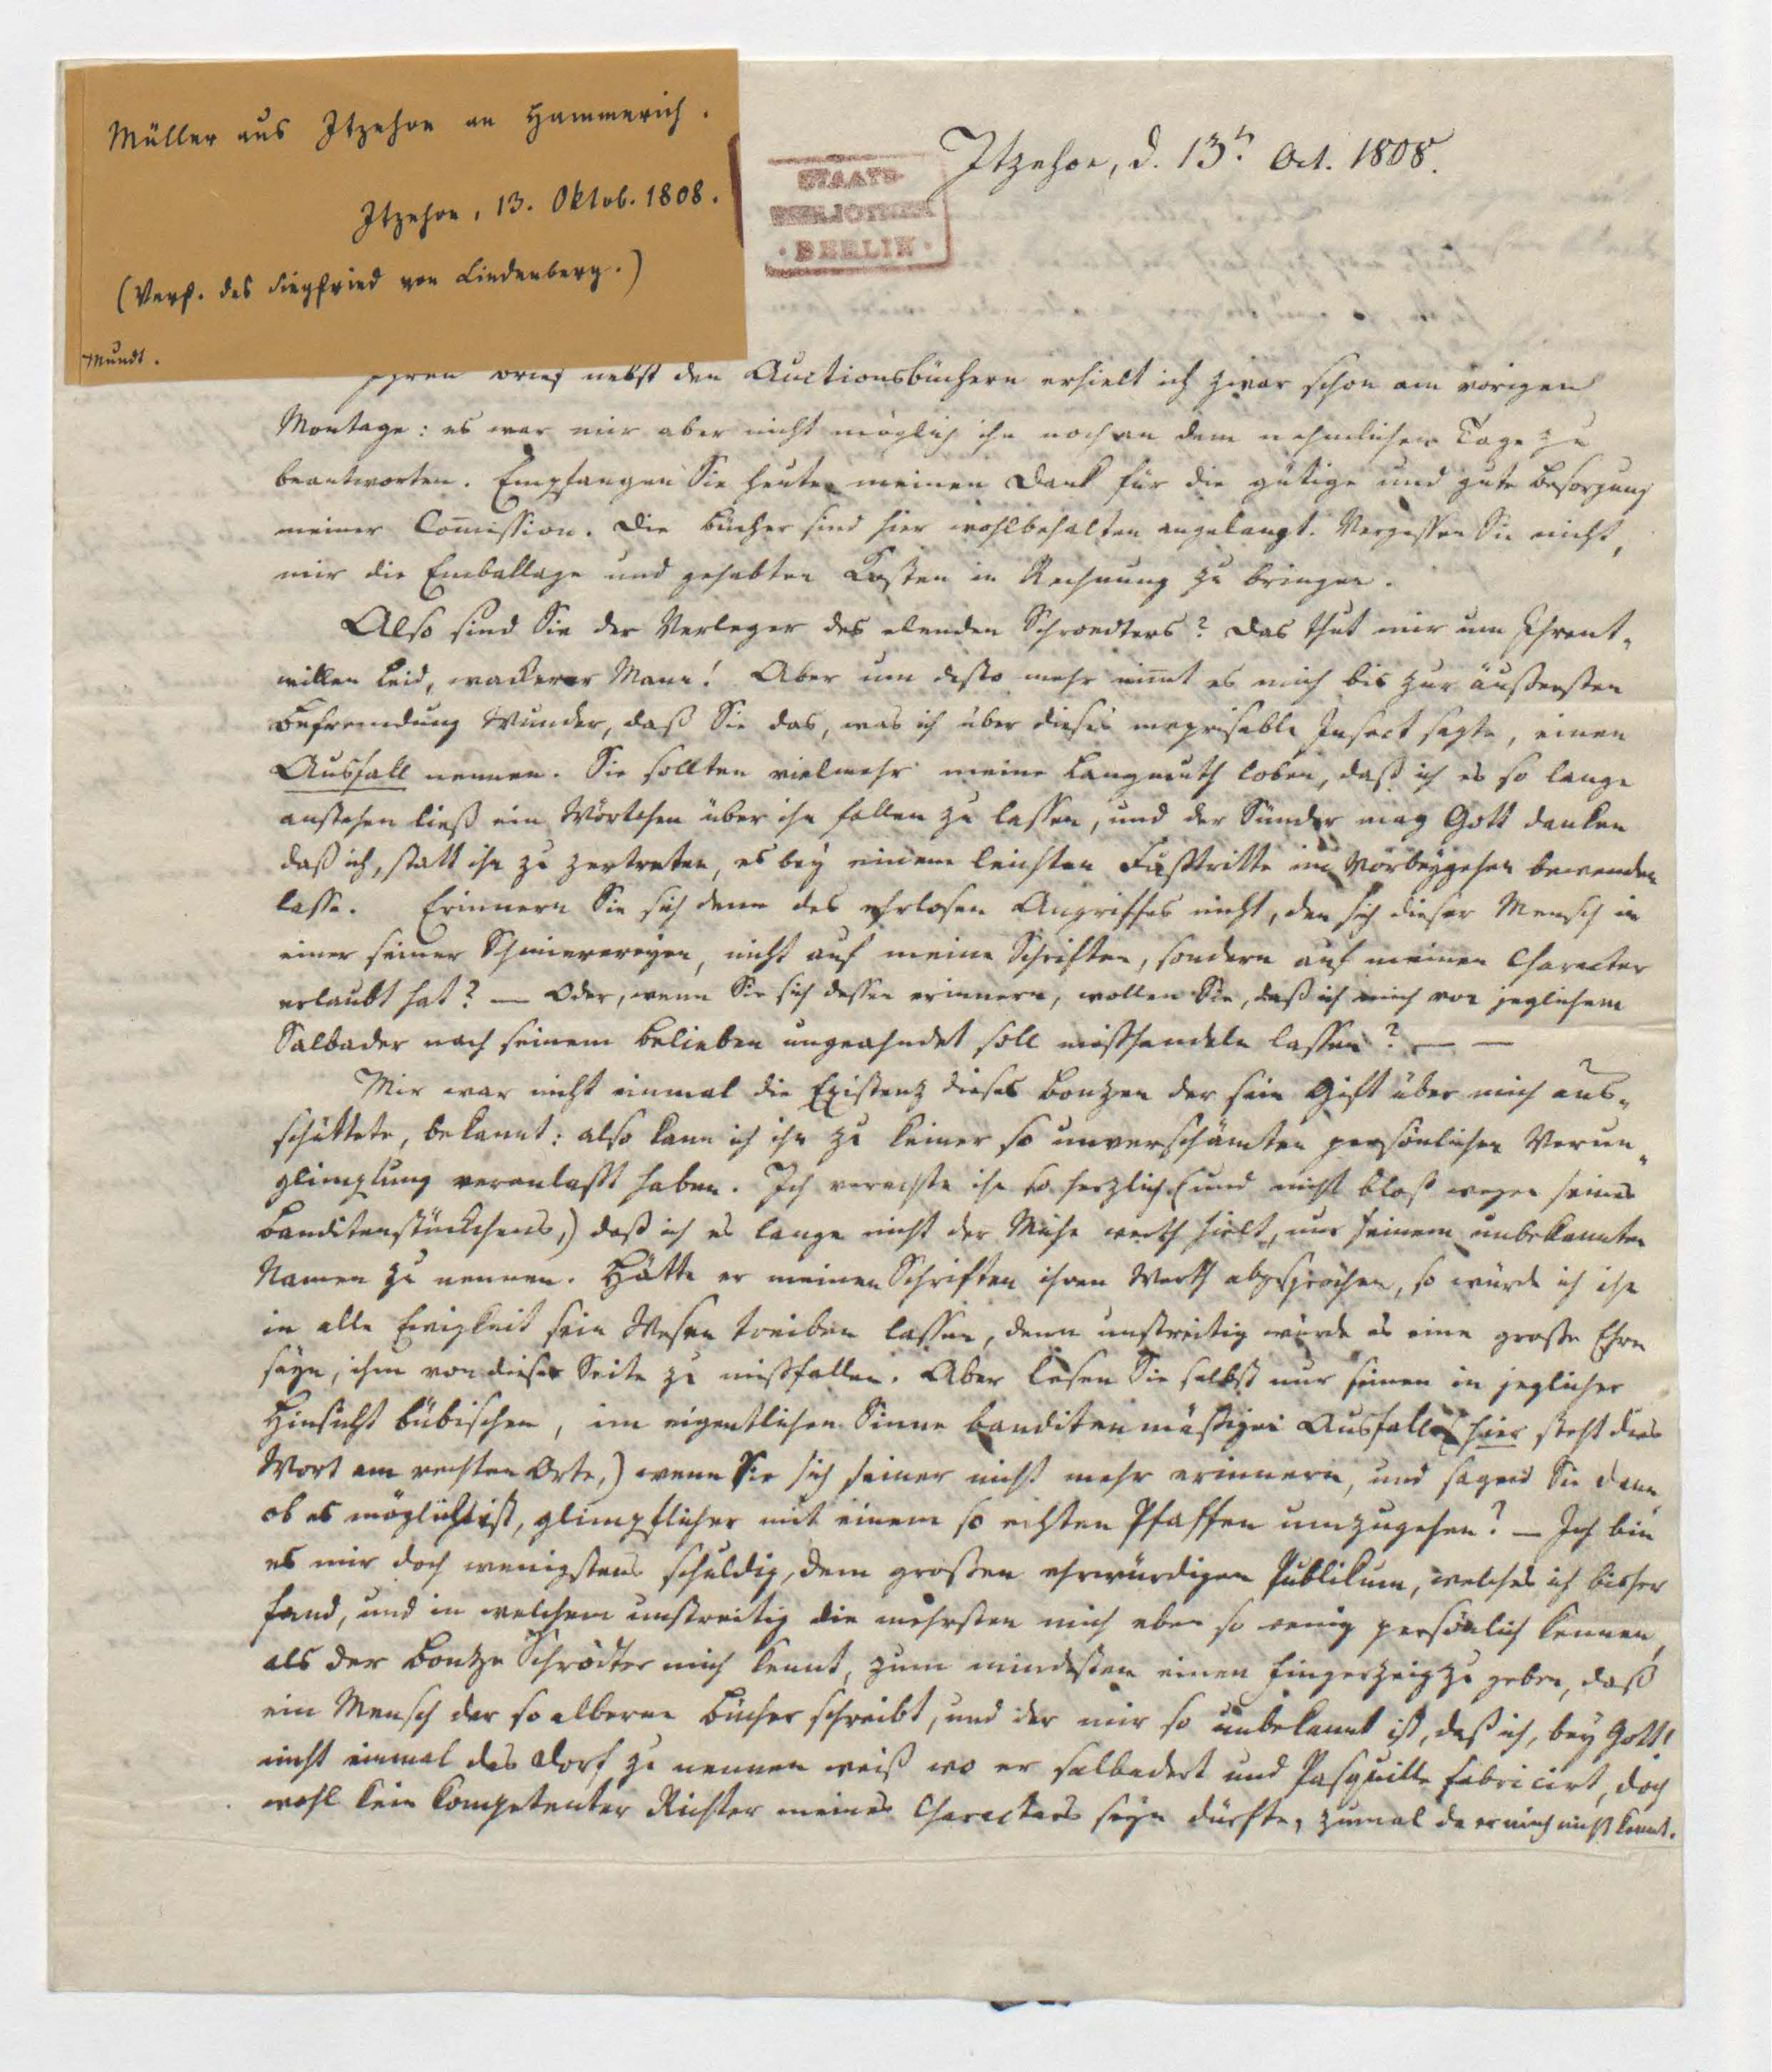 Müller aus Itzehoe an Hammerich.
Itzehoe, 13. Oktob. 1808.
(Verf. des Siegfried von Lindenberg.)
Mundt.
STAATS-
BIBLIOTHEK
· BERLIN ·
Itzehoe, d. 13t. Oct. 1808.
Ihren Brief nebst den Auctionsbüchern erhielt ich zwar schon am vorigen
Montage: es war mir aber nicht möglich ihn noch an dem nehmlichen Tage zu
beantworten. Empfangen Sie heute meinen Dank für die gütige und gute Besorgung
meiner Com̅ission. Die Bücher sind hier wohlbehalten angelangt. Vergessen Sie nicht,
mir die Emballage und gehabten Kosten in Rechnung zu bringen.
Also sind Sie der Verleger des elenden Schroedters? Das thut mir um Ihrent-
willen Leid, wackerer Mann! Aber um desto mehr nim̅t es mich bis zur äußersten
Befremdung Wunder, daß Sie das, was ich über dieses meprisable Insect sagte, einen
Ausfall nennen. Sie sollten vielmehr meine Langmuth loben, daß ich es so lange
anstehen ließ ein Wörtchen über ihn fallen zu lassen, und der Sünder mag Gott danken
daß ich, statt ihn zu zertreten, es bey einem leichten Fußtritte im Vorbeygehen bewenden
lasse. Erinnern Sie sich denn des ehrlosen Angriffes nicht, den sich dieser Mensch in
einer seiner Schmierereyen, nicht auf meine Schriften, sondern auf meinen Character
erlaubt hat? — Oder, wenn Sie sich dessen erinnern, wollen Sie, daß ich mich von jeglichem
Salbader nach seinem Belieben ungeahndet soll misshandeln lassen? — —
Mir war nicht einmal die Existenz dieses Bonzen der sein Gift über mich aus-
schüttete, bekannt: also kann ich ihn zu keiner so unverschämten persönlichen Verun-
glimpfung veranlasst haben. Ich verachte ihn so herzlich (und nicht bloß wegen seines
Banditenstückchens,) daß ich es lange nicht der Mühe werth hielt, nur seinen unbekannten
Namen zu nennen. Hätte er meinen Schriften ihren Werth abgesprochen, so würde ich ihn
in alle Ewigkeit sein Wesen treiben lassen, denn unstreitig würde es eine große Ehre
seyn, ihm von dieser Seite zu misfallen. Aber lesen Sie selbst nur seinen in jeglicher
Hinsicht bübischen, im eigentlichen Sinne banditenmäßigen Ausfall (hier steht das
Wort am rechten Orte,) wenn Sie sich seiner nicht mehr erinnern, und sagen Sie dann
ob es möglich ist, glimpflicher mit einem so echten Pfaffen umzugehen? — Ich bin
es mir doch wenigstens schuldig, dem großen ehrwürdigen Publikum, welches ich bisher
fand, und in welchem unstreitig die mehrsten mich eben so wenig persönlich kennen,
als der Bonze Schrödter mich kennt, zum mindesten einen Fingerzeig zu geben, daß
ein Mensch der so alberne Bücher schreibt, und der mir so unbekannt ist, daß ich, bey Gott!
nicht einmal das Dorf zu nennen weiß wo er salbadert und Pasquille fabricirt, doch
wohl kein kompetenter Richter meines Characters seyn dürfte, zumal da er mich nicht kennt.